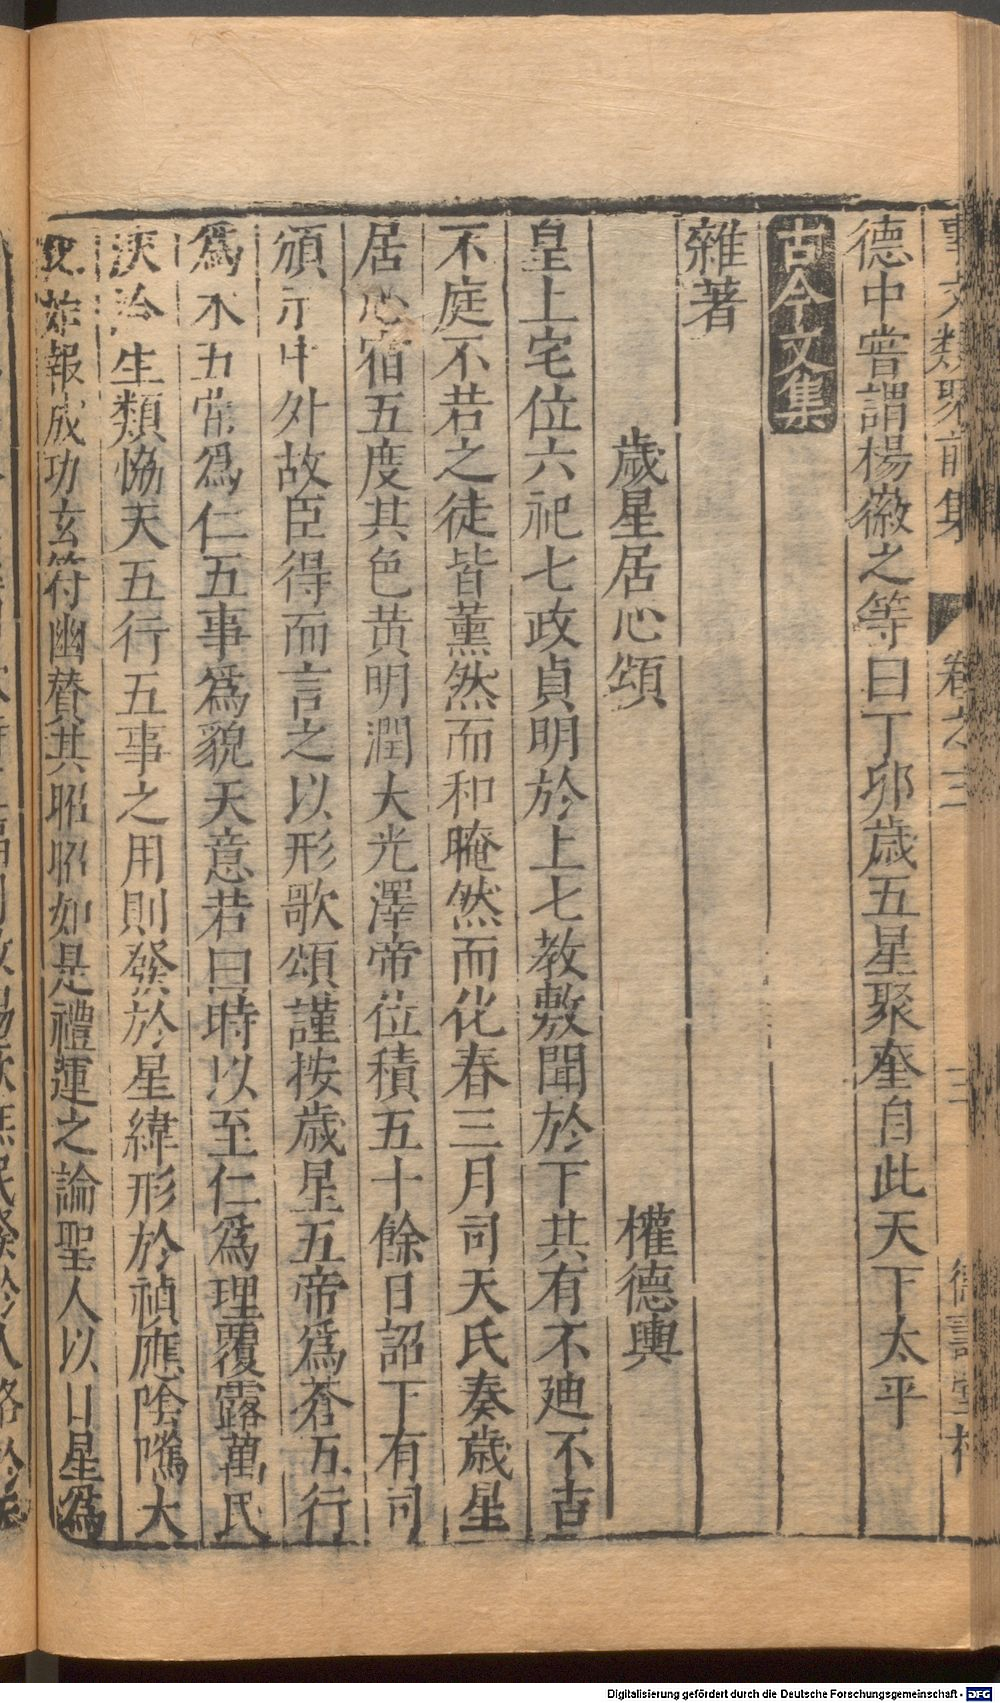 事文類聚前集 卷之三 三
德中嘗謂楊徽之等曰丁卯歲五星聚奎自此天下太平
古今文集
雜著
歲星居心頌 權德輿
皇上宅位六祀七政貞明於上七教敷聞於下其有不迪不吉
不庭不若之徒皆薰然而和晻然而化春三月司天氏奏歲星
居心宿五度其色黃明潤大光澤帝位積五十餘日詔下有司
頒示中外故臣得而言之以形歌頌謹按歲星五帝爲蒼五行
爲木五常爲仁五事爲貌天意若曰時以至仁爲理覆露萬民
浹洽生類恊天五行五事之用則發於星緯形於禎應陰騭大
報成功玄符幽贊其昭昭如是禮運之論聖人以日星爲
Digitalisierung gefördert durch die Deutsche Forschungsgemeinschaft - DFG